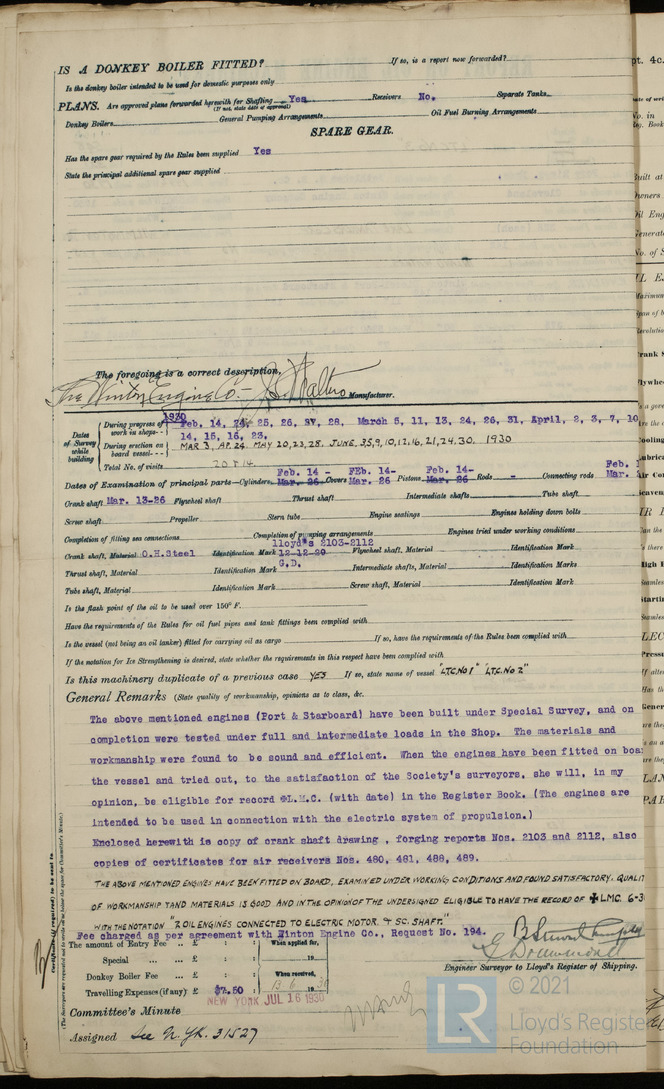 IS A DONKEY BOILER FITTED? If so, is a report now forwarded?
Is the donkey boiler intended to be used for domestic purposes only
PLANS. Are approved plans forwarded herewith for Shafting Yes Receivers No. Separate Tanks
(If not, state date of approval)
Donkey Boilers General Pumping Arrangements Oil Fuel Burning Arrangements
SPARE GEAR.
Has the spare gear required by the Rules been supplied Yes
State the principal additional spare gear supplied
The foregoing is a correct description,
The Winton Engine Co. Manufacturer.
1930
Dates of Survey while building
During progress of work in shops-- Feb. 14, 24, 25, 26, 27, 28, March 5, 11, 13, 24, 26, 31, April, 2, 3, 7, 10
14, 15, 16, 23.
During erection on board vessel--- MAR 3, AP. 24. MAY 20,23,28. JUNE. 3,5,9,10,12,16,21,24,30. 1930
Total No. of visits 20 + 14
Feb. 14 - FEb. 14- Feb. 14- Feb. 1
Dates of Examination of principal parts—Cylinders Mar. 26 Covers Mar. 26 Pistons Mar. 26 Rods - Connecting rods Mar.
Crank shaft Mar. 13-26 Flywheel shaft Thrust shaft Intermediate shafts Tube shaft
Screw shaft Propeller Stern tube Engine seatings Engines holding down bolts
Completion of fitting sea connections Completion of pumping arrangements Engines tried under working conditions
lloyd's 2103-2112
Crank shaft, Material O.H.Steel Identification Mark 12-12-29 Flywheel shaft, Material Identification Mark
G.D.
Thrust shaft, Material Identification Mark Intermediate shafts, Material Identification Marks
Tube shaft, Material Identification Mark Screw shaft, Material Identification Mark
Is the flash point of the oil to be used over 150° F.
Have the requirements of the Rules for oil fuel pipes and tank fittings been complied with
Is the vessel (not being an oil tanker) fitted for carrying oil as cargo If so, have the requirements of the Rules been complied with
If the notation for Ice Strengthening is desired, state whether the requirements in this respect have been complied with
Is this machinery duplicate of a previous case YES If so, state name of vessel "L.T.C. No 1" "L.T.C. No 2"
General Remarks (State quality of workmanship, opinions as to class, &c.
The above mentioned engines (Port & Starboard) have been built under Special Survey, and on
completion were tested under full and intermediate loads in the Shop. The materials and
workmanship were found to be sound and efficient. When the engines have been fitted on boa
the vessel and tried out, to the satisfaction of the Society's surveyors, she will, in my
opinion, be eligible for record L.M.C. (with date) in the Register Book. (The engines are
intended to be used in connection with the electric system of propulsion.)
Enclosed herewith is copy of crank shaft drawing , forging reports Nos. 2103 and 2112, also
copies of certificates for air receivers Nos. 480, 481, 488, 489.
THE ABOVE MENTIONED ENGINES HAVE BEEN FITTED ON BOARD, EXAMINED UNDER WORKING CONDITIONS AND FOUND SATISFACTORY. QUALIT
OF WORKMANSHIP AND MATERIALS IS GOOD AND IN THE OPINION OF THE UNDERSIGNED ELIGIBLE TO HAVE THE RECORD OF ✠ LMC. 6-3
WITH THE NOTATION "2 OIL ENGINES CONNECTED TO ELECTRIC MOTOR & SC. SHAFT."
Fee charged as per agreement with Winton Engine Co., Request No. 194.
The amount of Entry Fee .. £ : : When applied for,
Special ... £ : : 19
Donkey Boiler Fee ... £ : : When received,
Travelling Expenses (if any) £ $7.50 : 19
Engineer Surveyor to Lloyd's Register of Shipping.
NEW YORK JUL 16 1930
Committee's Minute
Assigned See N. Yk. 31527
© 2021
LR
Lloyd's Registe
Foundation